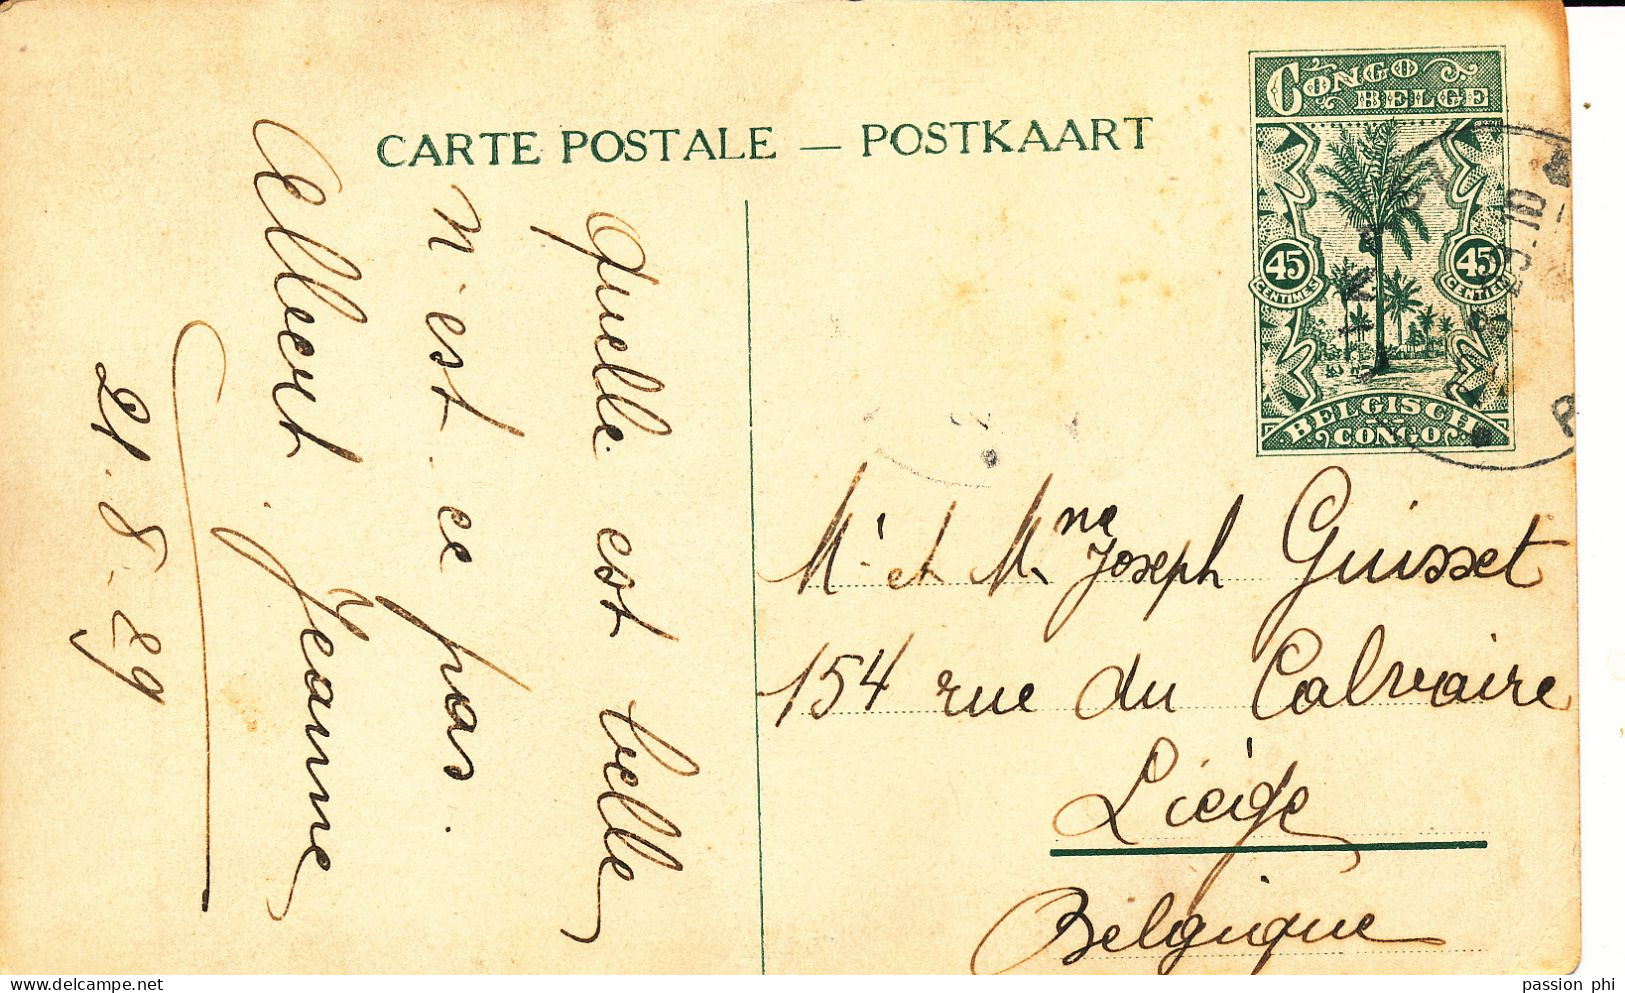 CARTE POSTALE — POSTKAART
CONGO
BELGE
45
CENTIMES
45
BELGISCH
CONGO
Quelle est belle
N'est ce pas.
Albert. Jeanne
21.8.29
Mr et Mme Joseph Guisset
154 rue du Calvaire
Liége
Belgique
passion phi